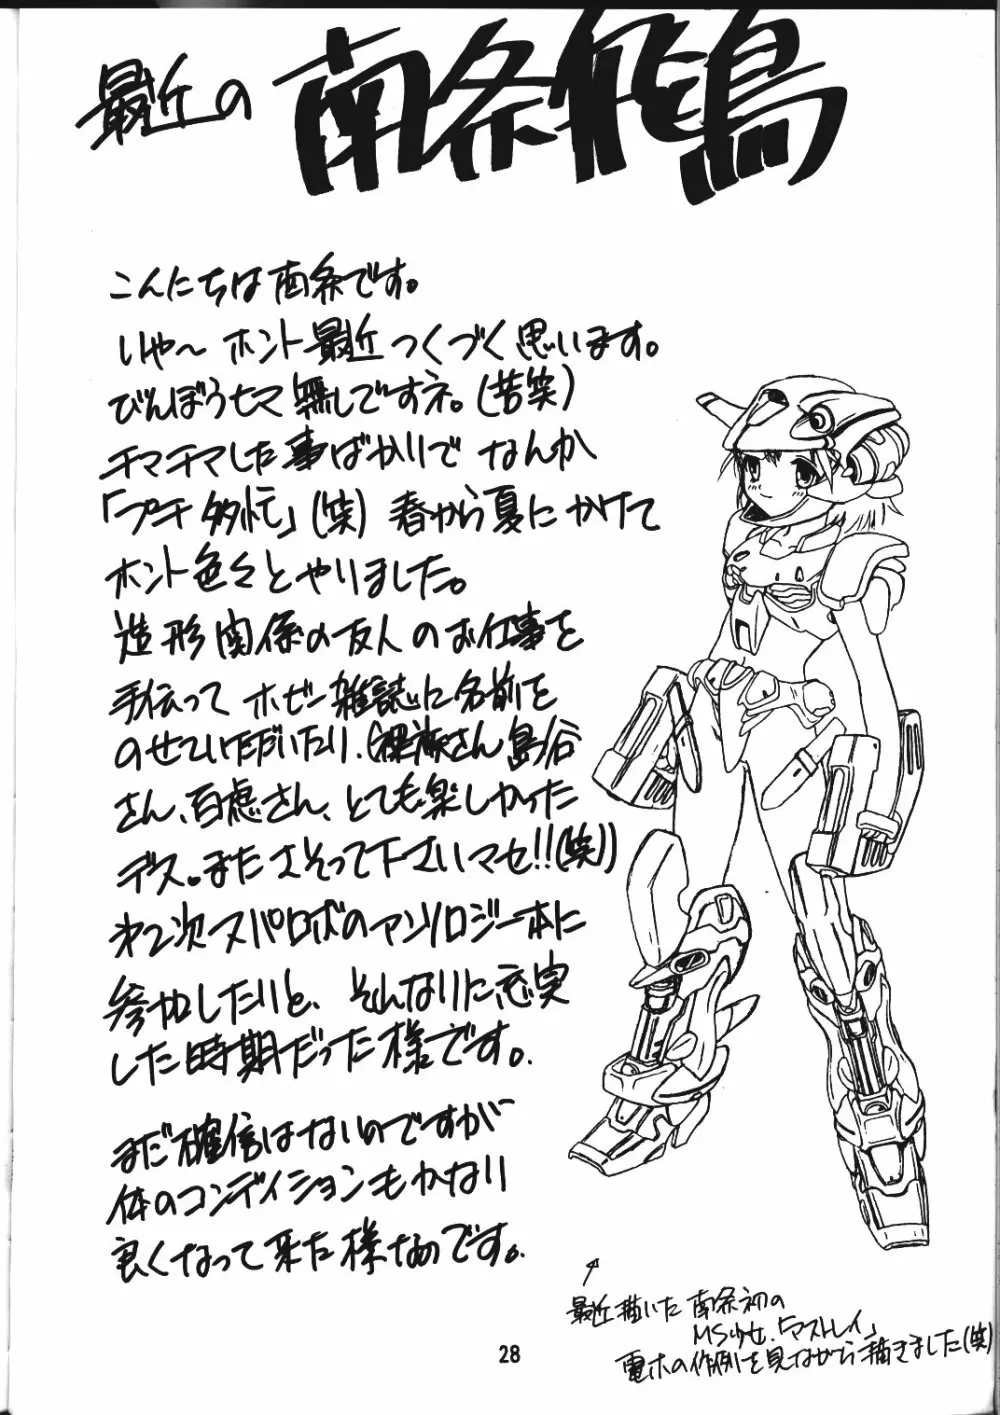 最近の 南条飛鳥
こんにちは南条です。
いや〜 ホント最近つくづく思います。
びんぼうヒマ無しですネ。(苦笑)
チマチマした事ばかりで なんか
「プチ多忙」(笑) 春から夏にかけて
ホント色々とやりました。
造形関係の友人のお仕事を
手伝って ホビー雑誌に名前を
のせていただいたり、さん 島谷
さん、百虎さん、とても楽しかった
デス。またさそって下さいマセ!!(笑))
第2次スパロボのアンソロジー本に
参加したりと、そんなりに充実
した時期だった様です。
まだ確信はないのですが
体のコンディションもかなり
良くなって来た様なのです。
最近描いた 南条初の
MS少女、「マストレイ」
電ホの作例を見ながら描きました(笑)
28